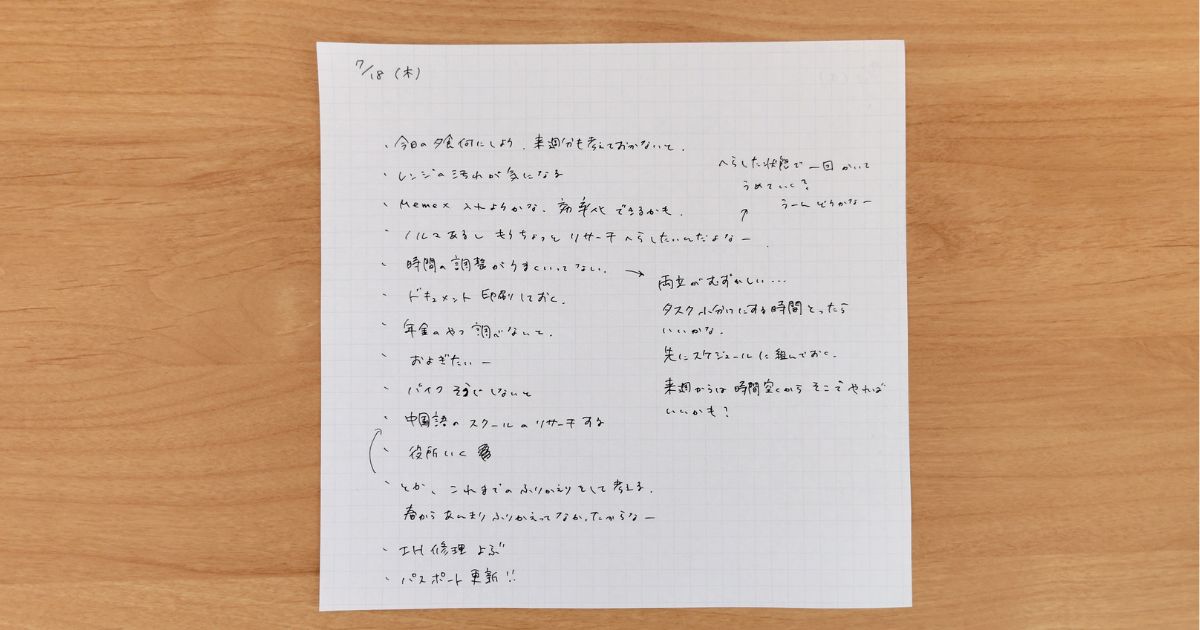 7/18 (木)
・今日の夕食何にしよう、来週分も考えておかないと。
・レンジの汚れが気になる
・Memex 入れようかな、効率化できるかも。
・ノルマあるし もうちょっと リサーチ へらしたいんだよなー
へらした状態で 一回 かいて
うめていく?
うーん どうかなー
・時間の調整がうまくいってない。 →
両立がむずかしい…
タスク小分けにする時間とったら
いいかな。
先にスケジュールに組んでおく。
来週からは時間空くから そこでやれば
いいかも?
・ドキュメント 印刷しておく。
・年金のやつ 調べないと。
・およぎたいー
・バイク そうじしないと
・中国語の スクールの リサーチする
・役所いく
・とか、これまでの ふりかえり をして 考える。
春から あんまり ふりかえってなかったからなー
・IH 修理 よぶ
・パスポート更新!!